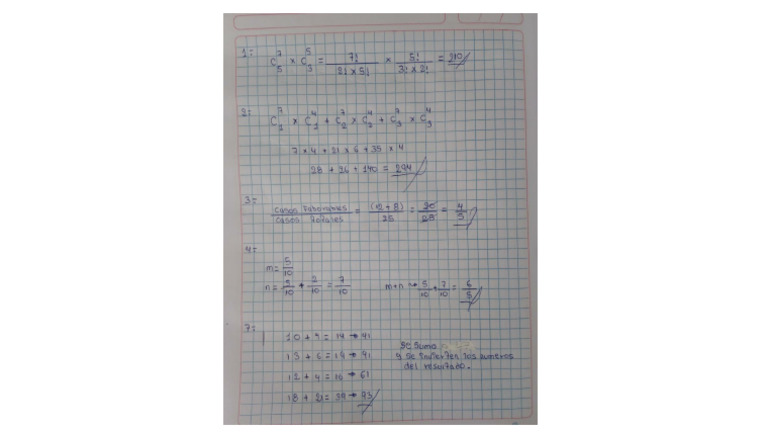 1=
C⁷₅ × C⁵₃ = 7! / 2! × 5! × 5! / 3! × 2! = 210
2=
C⁷₁ × C⁴₁ + C⁷₂ × C⁴₂ + C⁷₃ × C⁴₃
7 × 4 + 21 × 6 + 35 × 4
28 + 126 + 140 = 294
3=
Casos Faborables / Casos Totales = (12 + 8) / 25 = 20 / 25 = 4 / 5
4=
m = 5/10
n = 5/10 + 2/10 = 7/10
m+n → 5/10 + 7/10 = 6/5
7=
10 + 9 = 19 → 91
13 + 6 = 19 → 91
12 + 4 = 16 → 61
18 + 21 = 39 → 93
Se Suma
y se invierten los numeros
del resultado.